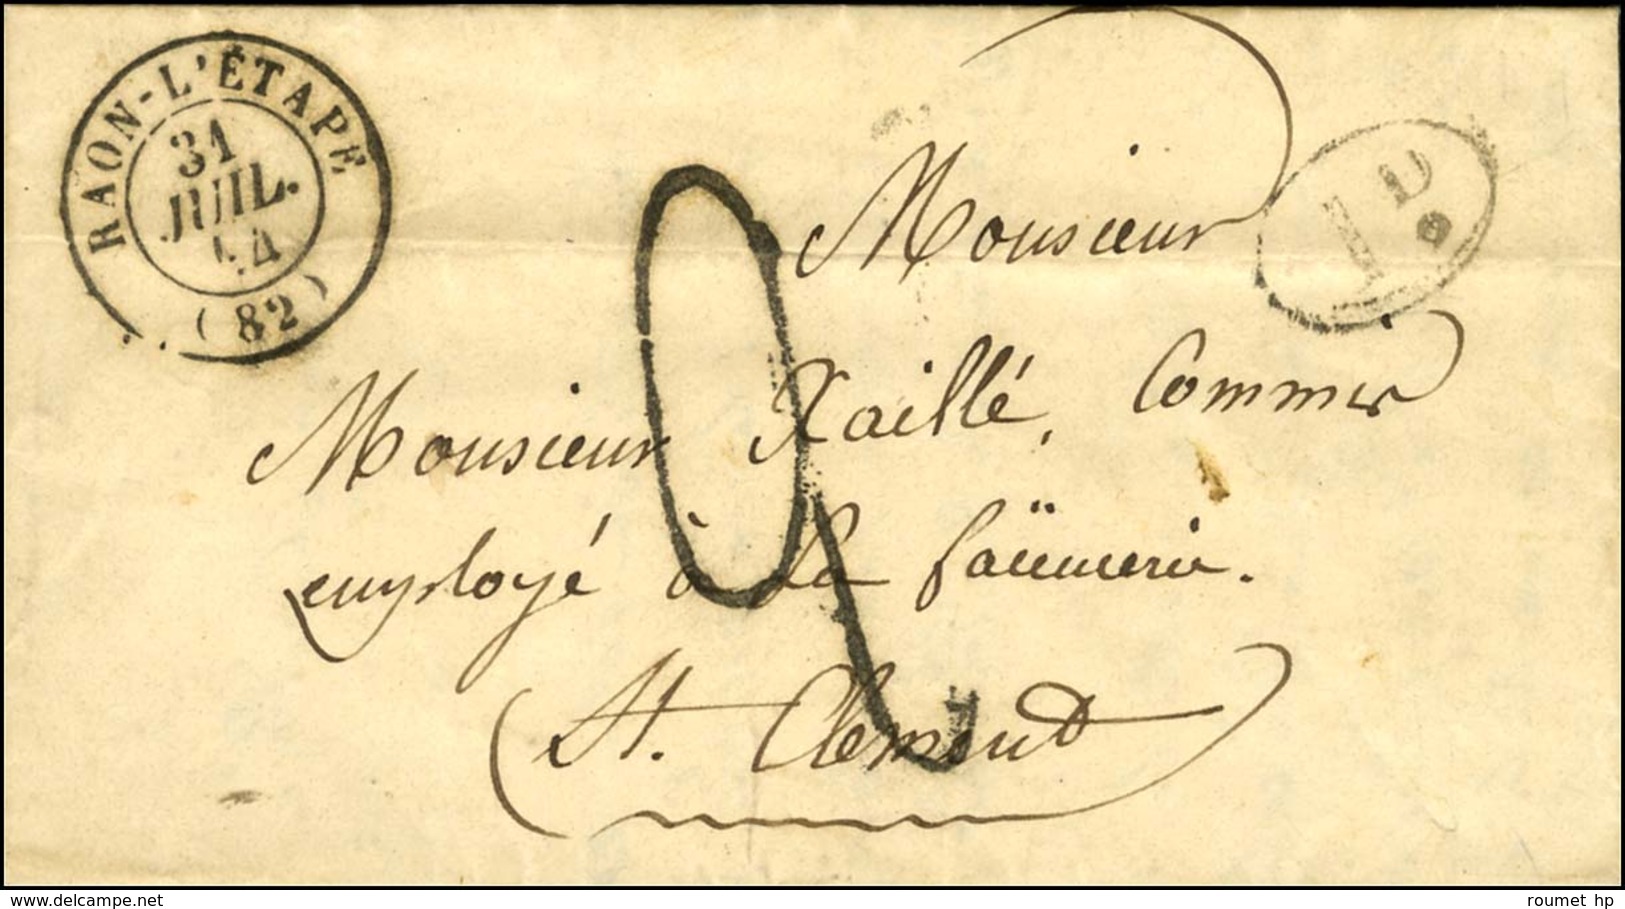 RAON-L'ÉTAPE
31
JUIL.
54
(82)
1 D
2
Monsieur
Monsieur Xaillé, Commis
employé à la faïencerie.
St. Clément
delcampe.net
roumet hp